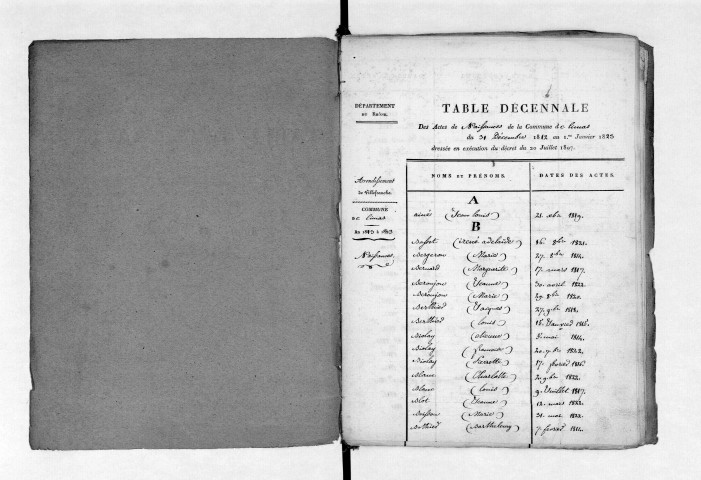 DÉPARTEMENT
DU RHÔNE.
Arrondissement
de Villefranche
COMMUNE
de Limas
de 1813 à 1823
Naissances
TABLE DÉCENNALE
Des Actes de Naissances de la Commune de Limas
du 31 Décembre 1812 au 1.er Janvier 1823
dressée en exécution du décret du 20 Juillet 1807.
NOMS ET PRÉNOMS. DATES DES ACTES.
A
(Jean Louis) 21 1819.
B
Buffet ( adelaïde) 16 8bre 1821.
Bergeron (Marie) 27 8bre 1814.
Bernard (Marguerite) 17 mars 1817.
Beroujon (Jeanne) 30 avril 1822.
Beroujon (Marie) 29 8bre 1820.
Berthier (Jacques) 27 9bre 1818.
Berthier (Louis) 18 Janvier 1816.
Biolay (etienne) mai 1814.
Biolay 20 7bre 1822.
Biolay (Pierrette) 17 fevrier 1816.
Blanc (Charlotte) 9bre 1822.
Blanc (Louis) 9 Juillet 1817.
Blot (Jeanne) 12 mars 1822.
Boisson (Marie) 31 mai 1822.
(Barthelemy) 7 fevrier 1814.